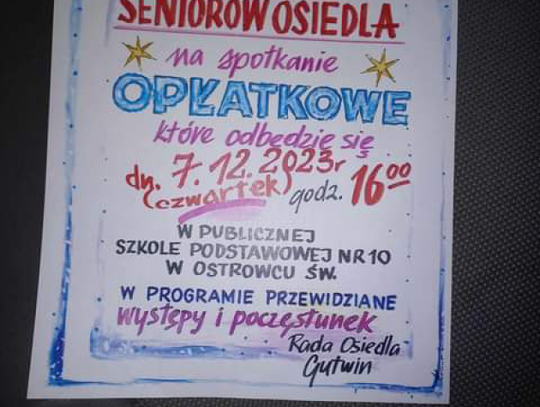 SENIORÓW OSIEDLA
na spotkanie
OPŁATKOWE
które odbędzie się
dn. 7.12.2023r
(czwartek) godz. 16⁰⁰
W PUBLICZNEJ
SZKOLE PODSTAWOWEJ NR 10
W OSTROWCU ŚW.
W PROGRAMIE PRZEWIDZIANE
występy i poczęstunek
Rada Osiedla
Gutwin